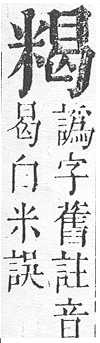 𥻉
譌字舊註音
曷白米誤